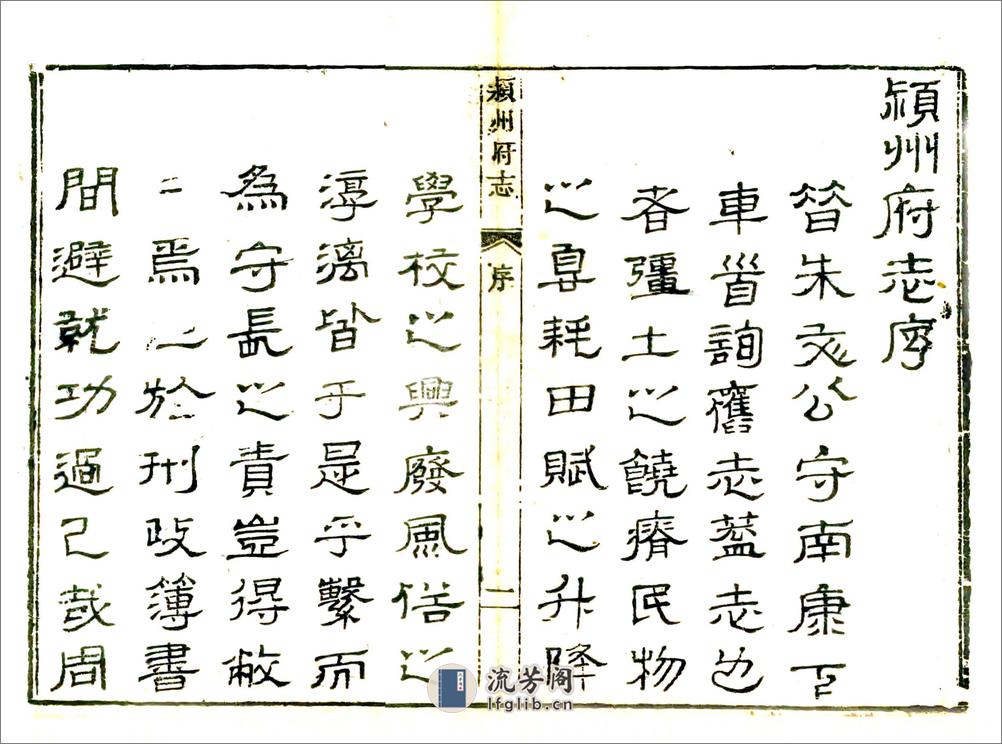 潁州府志序
昔朱文公守南康下
車首詢舊志蓋志也
者彊土之饒瘠民物
之息耗田賦之升降
潁州府志 序 二
學校之興廢風俗之
淳漓皆于是乎繫而
為守長之責豈得敝
二焉於刑政簿書
間避就功過已哉周
流芳阁
lfglib.cn